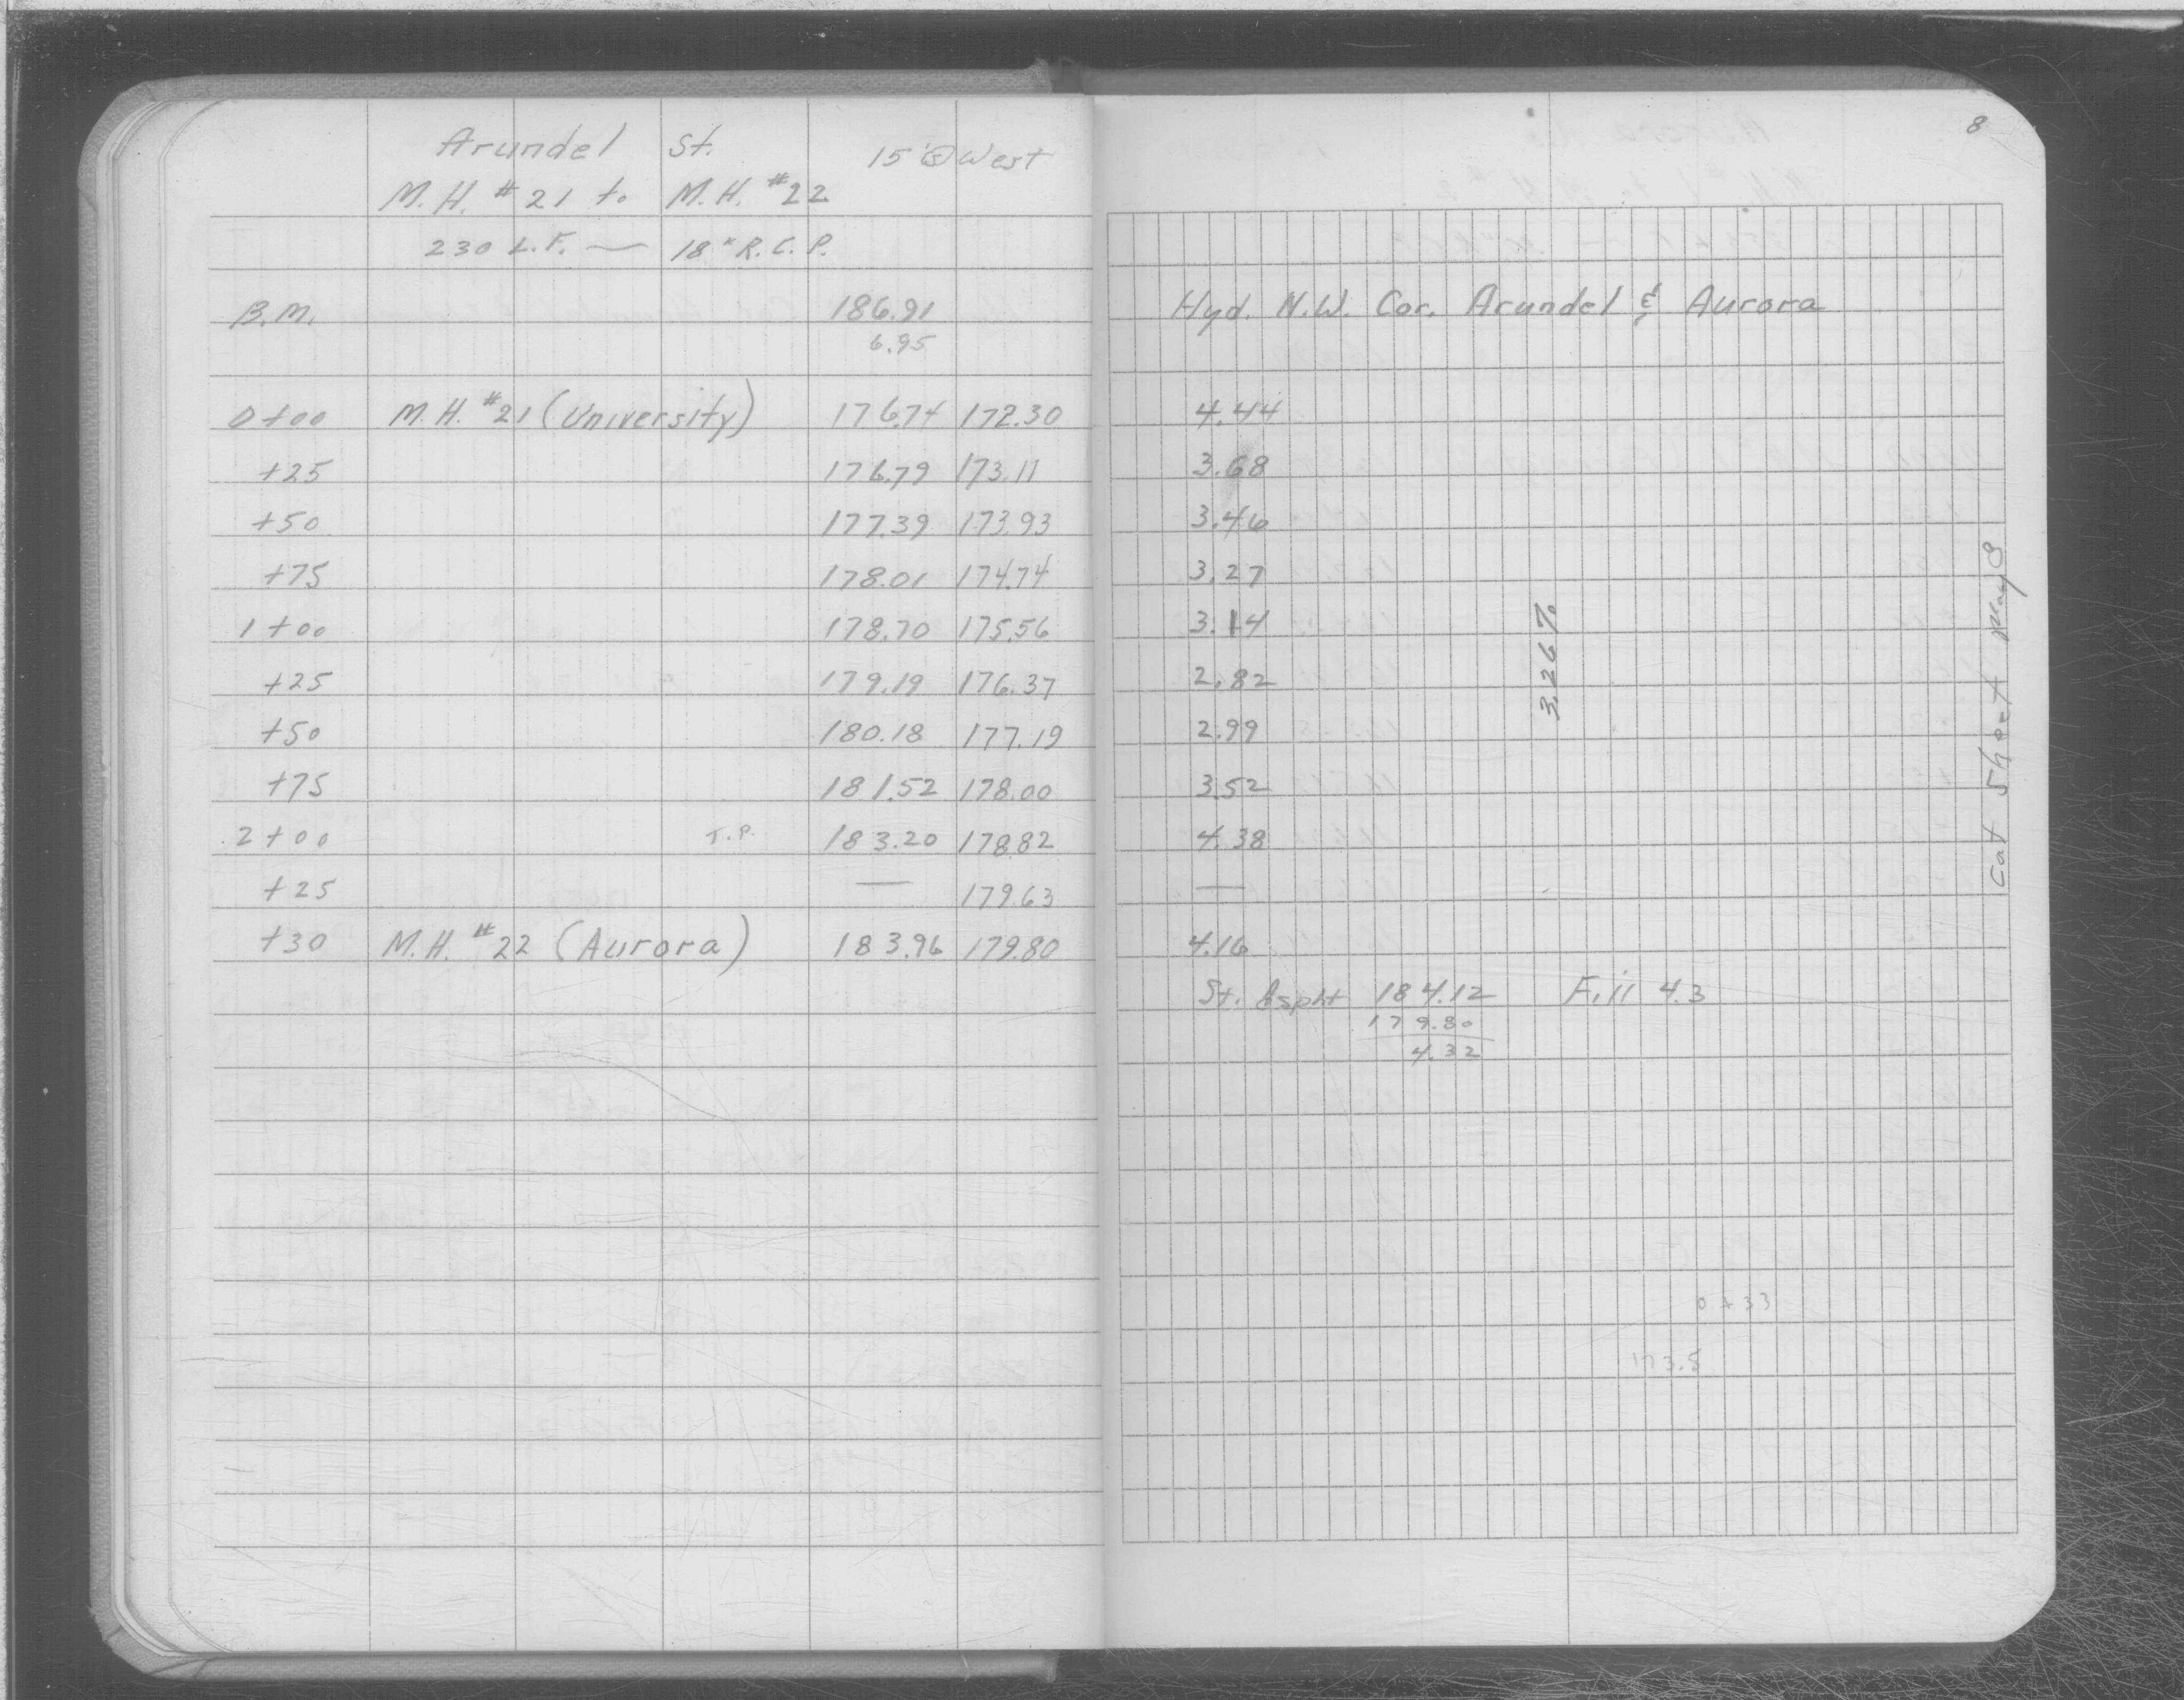 8
Arundel St. 15' West
M.H. #21 to M.H. #22
230 L.F. — 18" R.C.P.
B.M. 186.91 Hyd. N.W. Cor. Arundel & Aurora
6.95
0+00 M.H. #21 (University) 176.74 172.30 4.44
+25 176.79 173.11 3.68
+50 177.39 173.93 3.46
+75 178.01 174.74 3.27
1+00 178.70 175.56 3.14
+25 179.19 176.37 2.82
+50 180.18 177.19 2.99
+75 181.52 178.00 3.52
2+00 T.P. 183.20 178.82 4.38
+25 — 179.63 —
+30 M.H. #22 (Aurora) 183.96 179.80 4.16
St. Aspht 184.12 Fill 4.3
179.80
4.32
3.26%
Cut Sheet May 8
0+33
173.5